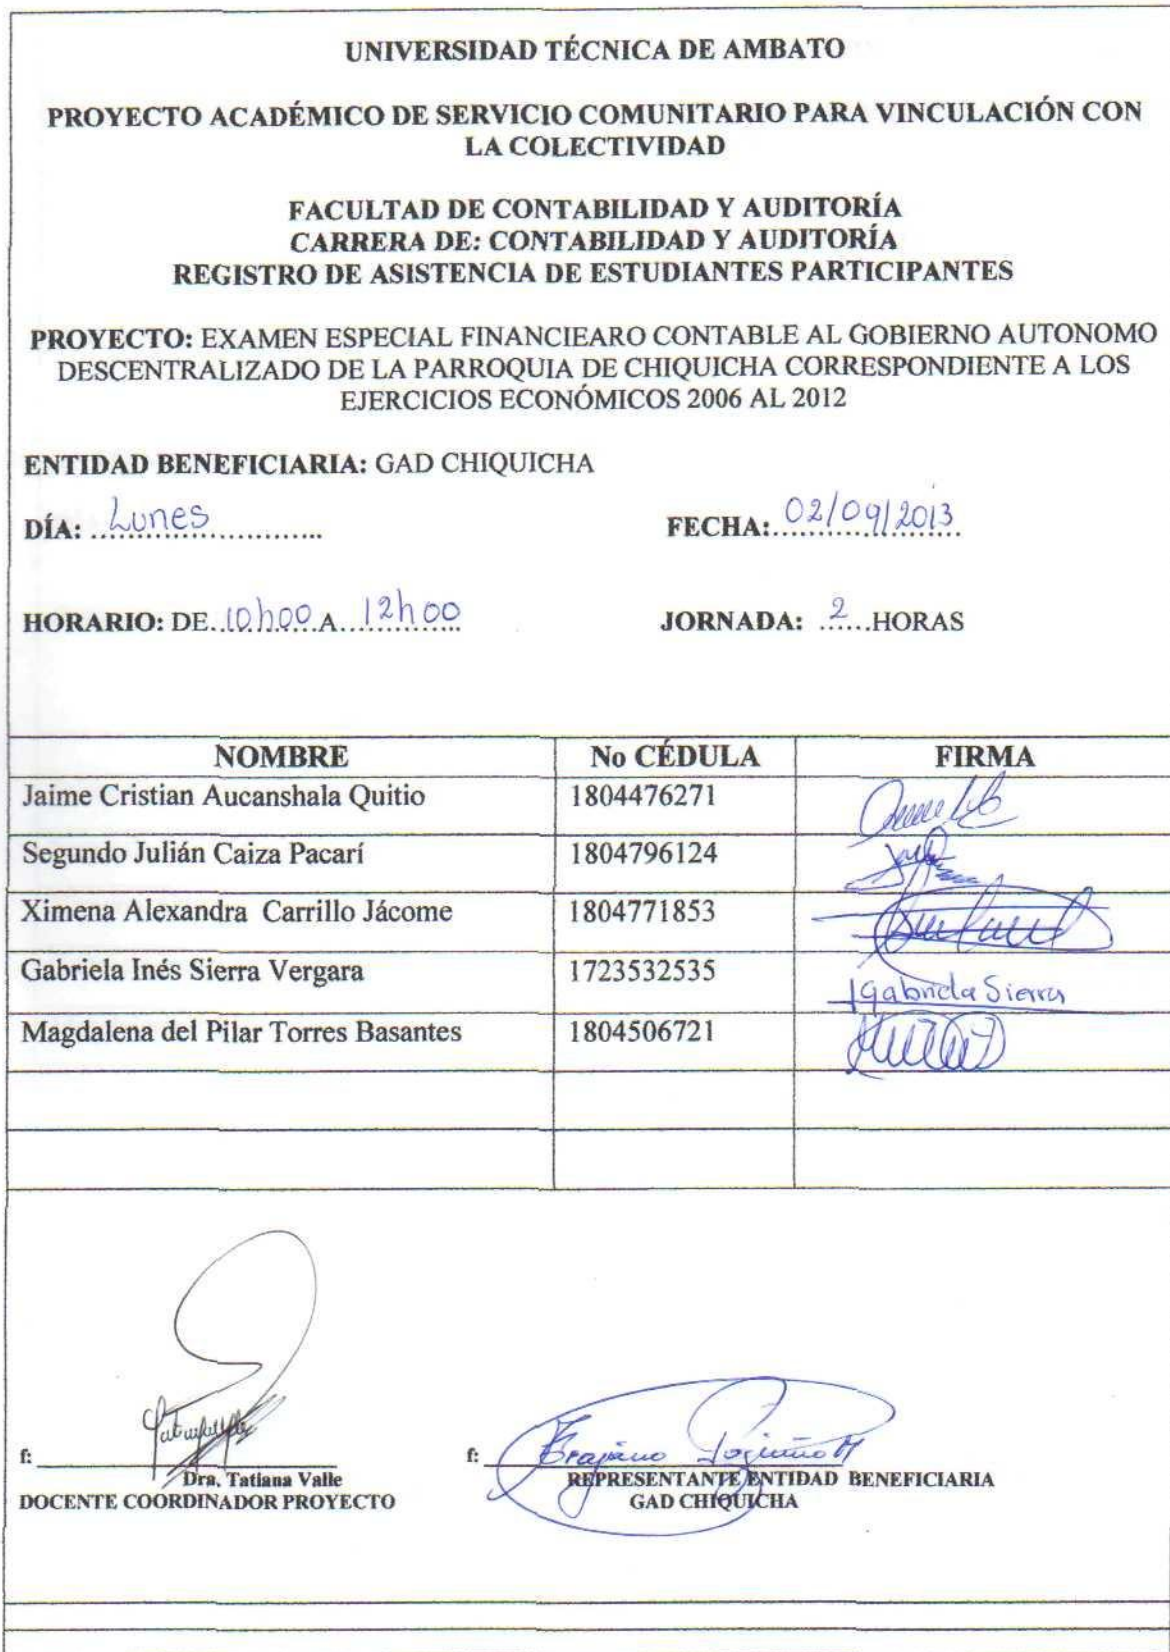 UNIVERSIDAD TÉCNICA DE AMBATO
PROYECTO ACADÉMICO DE SERVICIO COMUNITARIO PARA VINCULACIÓN CON
LA COLECTIVIDAD
FACULTAD DE CONTABILIDAD Y AUDITORÍA
CARRERA DE: CONTABILIDAD Y AUDITORÍA
REGISTRO DE ASISTENCIA DE ESTUDIANTES PARTICIPANTES
PROYECTO: EXAMEN ESPECIAL FINANCIEARO CONTABLE AL GOBIERNO AUTONOMO
DESCENTRALIZADO DE LA PARROQUIA DE CHIQUICHA CORRESPONDIENTE A LOS
EJERCICIOS ECONÓMICOS 2006 AL 2012
ENTIDAD BENEFICIARIA: GAD CHIQUICHA
DÍA: Lunes FECHA: 02/09/2013
HORARIO: DE 10h00 A 12h00 JORNADA: 2 HORAS
NOMBRE No CÉDULA FIRMA
Jaime Cristian Aucanshala Quitio 1804476271
Segundo Julián Caiza Pacarí 1804796124
Ximena Alexandra Carrillo Jácome 1804771853
Gabriela Inés Sierra Vergara 1723532535 Gabriela Sierra
Magdalena del Pilar Torres Basantes 1804506721
f: f:
Dra. Tatiana Valle REPRESENTANTE ENTIDAD BENEFICIARIA
DOCENTE COORDINADOR PROYECTO GAD CHIQUICHA